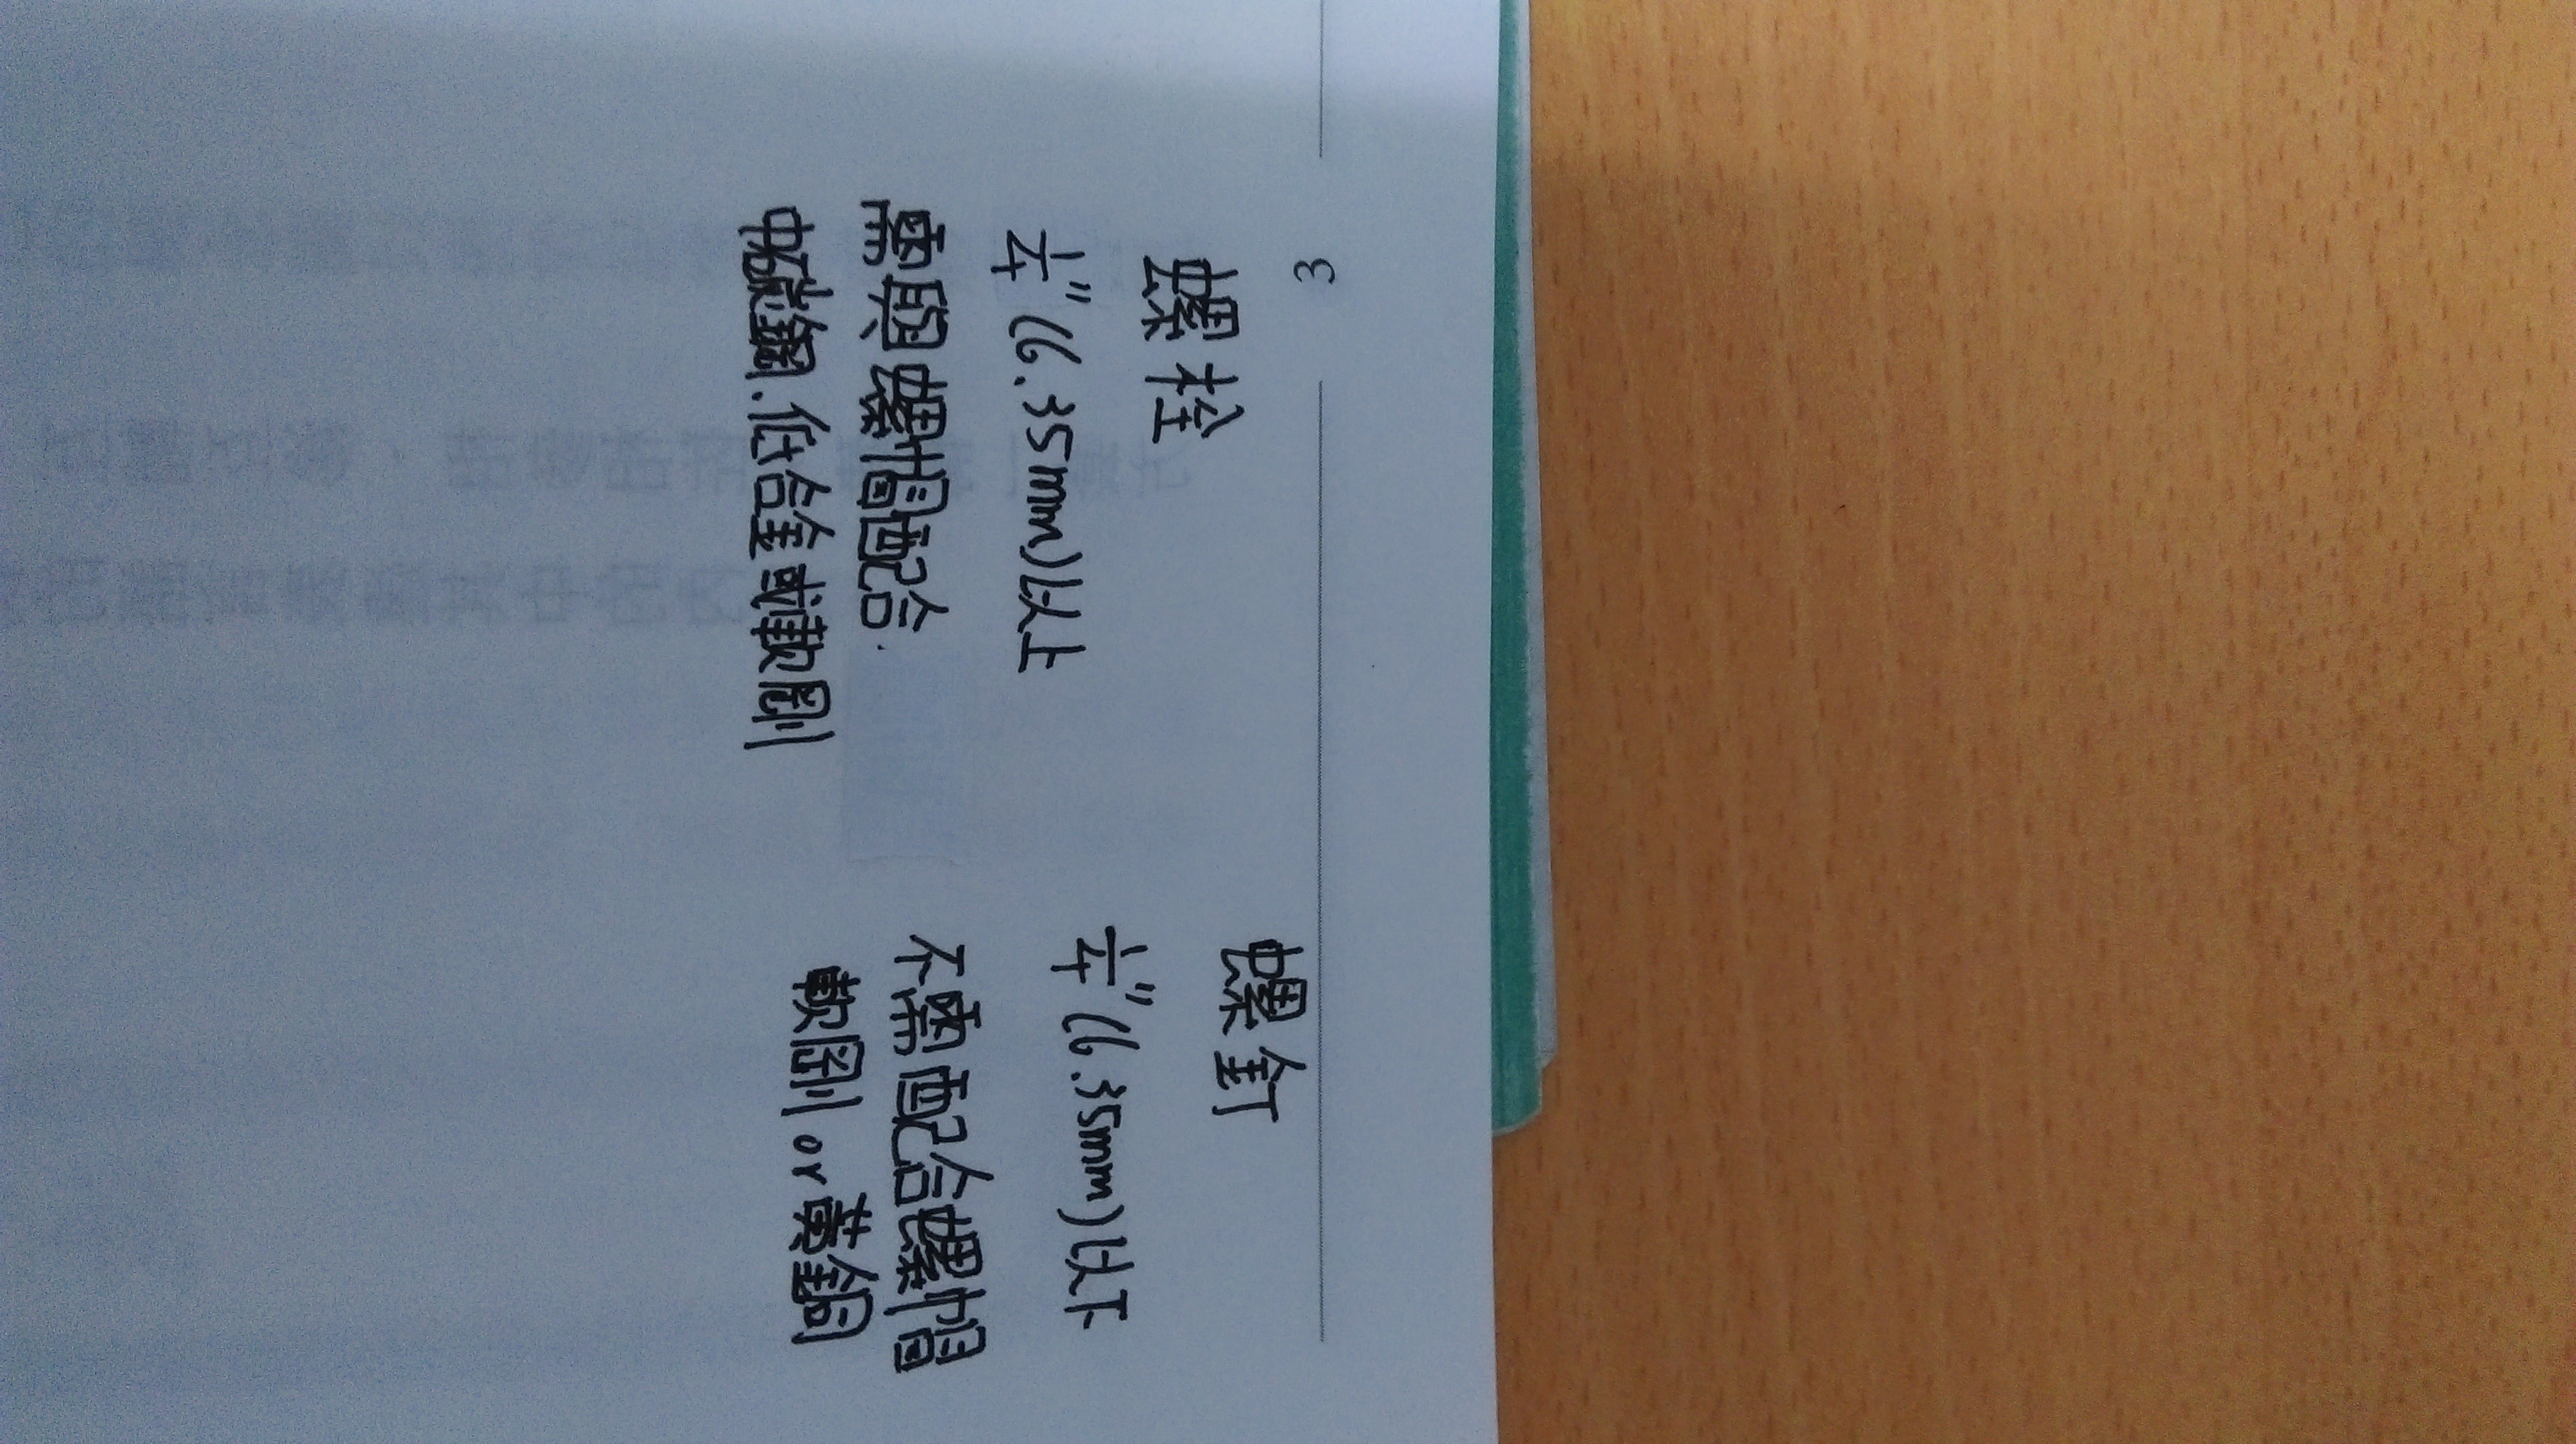 3
螺栓
1/4"(6.35mm)以上
需與螺帽配合.
中碳鋼.低合金或軟剛
螺釘
1/4"(6.35mm)以下
不需配合螺帽
軟剛 or 黃銅